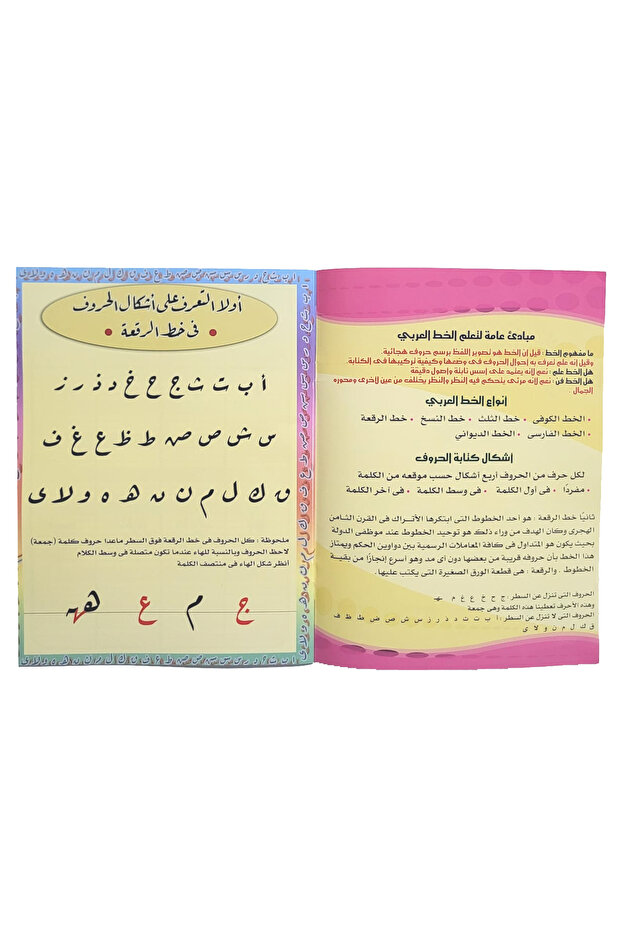 مبادئ عامة لتعلم الخط العربي
ما مفهوم الخط : قيل إن الخط هو تصوير اللفظ برسم حروف هجائية.
وقيل إنه علم تعرف به أحوال الحروف فى وضعها وكيفية تركيبها فى الكتابة.
هل الخط علم : نعم لأنه يعتمد على أسس ثابتة وأصول دقيقة
هل الخط فن : نعم لأنه مرئى يتحكم فيه النظر والنظر يختلف من عين لأخرى ومحوره
الجمال
أنواع الخط العربي
• الخط الكوفى • خط الثلث • خط النسخ • خط الرقعة
• الخط الفارسى • الخط الديوانى
أشكال كتابة الحروف
لكل حرف من الحروف أربع أشكال حسب موقعه من الكلمة
• مفردًا • فى أول الكلمة • فى وسط الكلمة • فى آخر الكلمة
ثانيًا خط الرقعة : هو أحد الخطوط التى ابتكرها الأتراك فى القرن الثامن
الهجرى وكان الهدف من وراء ذلك هو توحيد الخطوط عند موظفى الدولة
بحيث يكون هو المتداول فى كافة المعاملات الرسمية بين دواوين الحكم ويمتاز
هذا الخط بأن حروفه قريبة من بعضها دون أى مد وهو أسرع إنجازًا من بقية
الخطوط . والرقعة : هى قطعة الورق الصغيرة التى يكتب عليها.
الحروف التى تنزل عن السطر : ج ح خ ع غ م ـهـ
وهذه الأحرف تعطينا هذه الكلمة وهى جمعة
الحروف التى لا تنزل عن السطر : أ ب ت ث د ذ ر ز س ش ص ض ط ظ ف
ق ك ل م ن و لا ى
أولا التعرف على أشكال الحروف
• فى خط الرقعة •
أ ب ت ث ج ح خ د ذ ر ز
س ش ص ض ط ظ ع غ ف
ق ك ل م ن ن ه ه و لا ى
ملحوظة : كل الحروف فى خط الرقعة فوق السطر ماعدا حروف كلمة (جمعة)
لاحظ الحروف وبالنسبة للهاء عندما تكون متصلة فى وسط الكلام
أنظر شكل الهاء فى منتصف الكلمة
ج م ع هـهـ